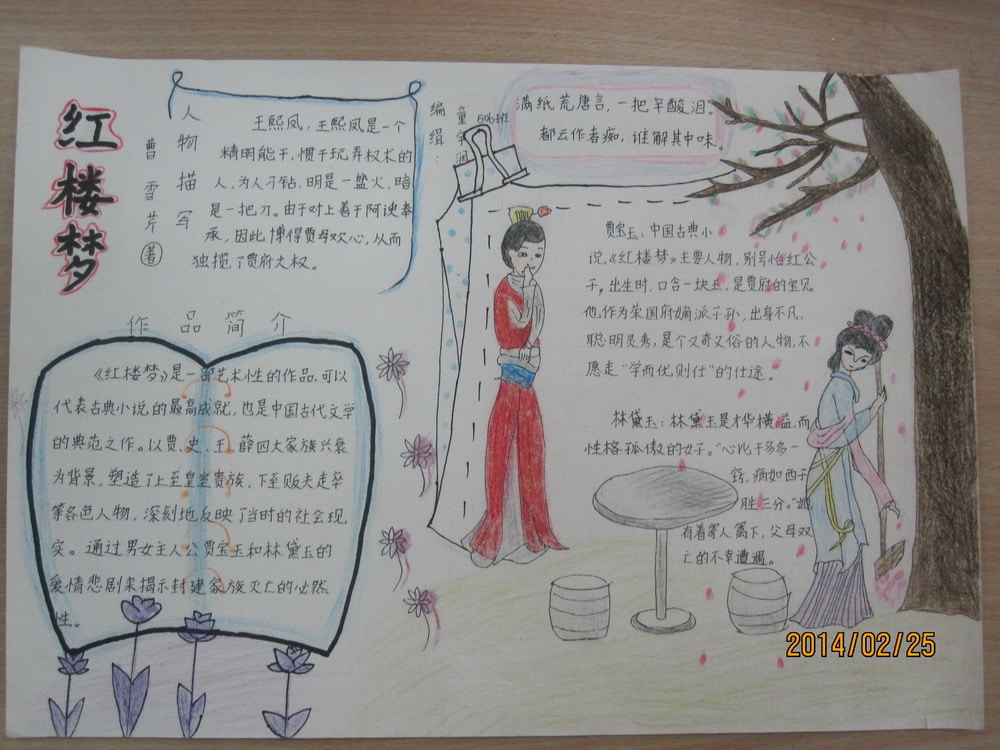 红楼梦
曹雪芹著
人物描写
王熙凤：王熙凤是一个
精明能干，惯于玩弄权术的
人，为人刁钻，明是一盆火，暗
是一把刀。由于对上善于阿谀奉
承，因此博得贾母欢心，从而
独揽了贾府大权。
编辑：
506班
满纸荒唐言，一把辛酸泪。
都云作者痴，谁解其中味。
作品简介
《红楼梦》是一部艺术性的作品，可以
代表古典小说的最高成就，也是中国古代文学
的典范之作。以贾、史、王、薛四大家族兴衰
为背景，塑造了上至皇室贵族，下至贩夫走卒
等各色人物，深刻地反映了当时的社会现
实。通过男女主人公贾宝玉和林黛玉的
爱情悲剧来揭示封建家族灭亡的必然
性。
贾宝玉：中国古典小
说，《红楼梦》主要人物，别号怡红公
子，出生时，口含一块玉，是贾府的宝贝。
他作为荣国府嫡派子孙，出身不凡，
聪明灵秀，是个又奇又俗的人物，不
愿走“学而优则仕”的仕途。
林黛玉：林黛玉是才华横溢，而
性格孤傲的女子。“心比干多一
窍，病如西子
胜三分。”她
有着寄人篱下，父母双
亡的不幸遭遇。
2014/02/25